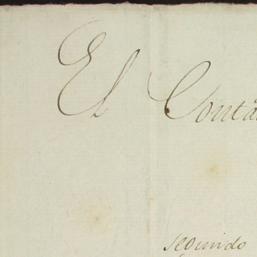 El Conta
seguido